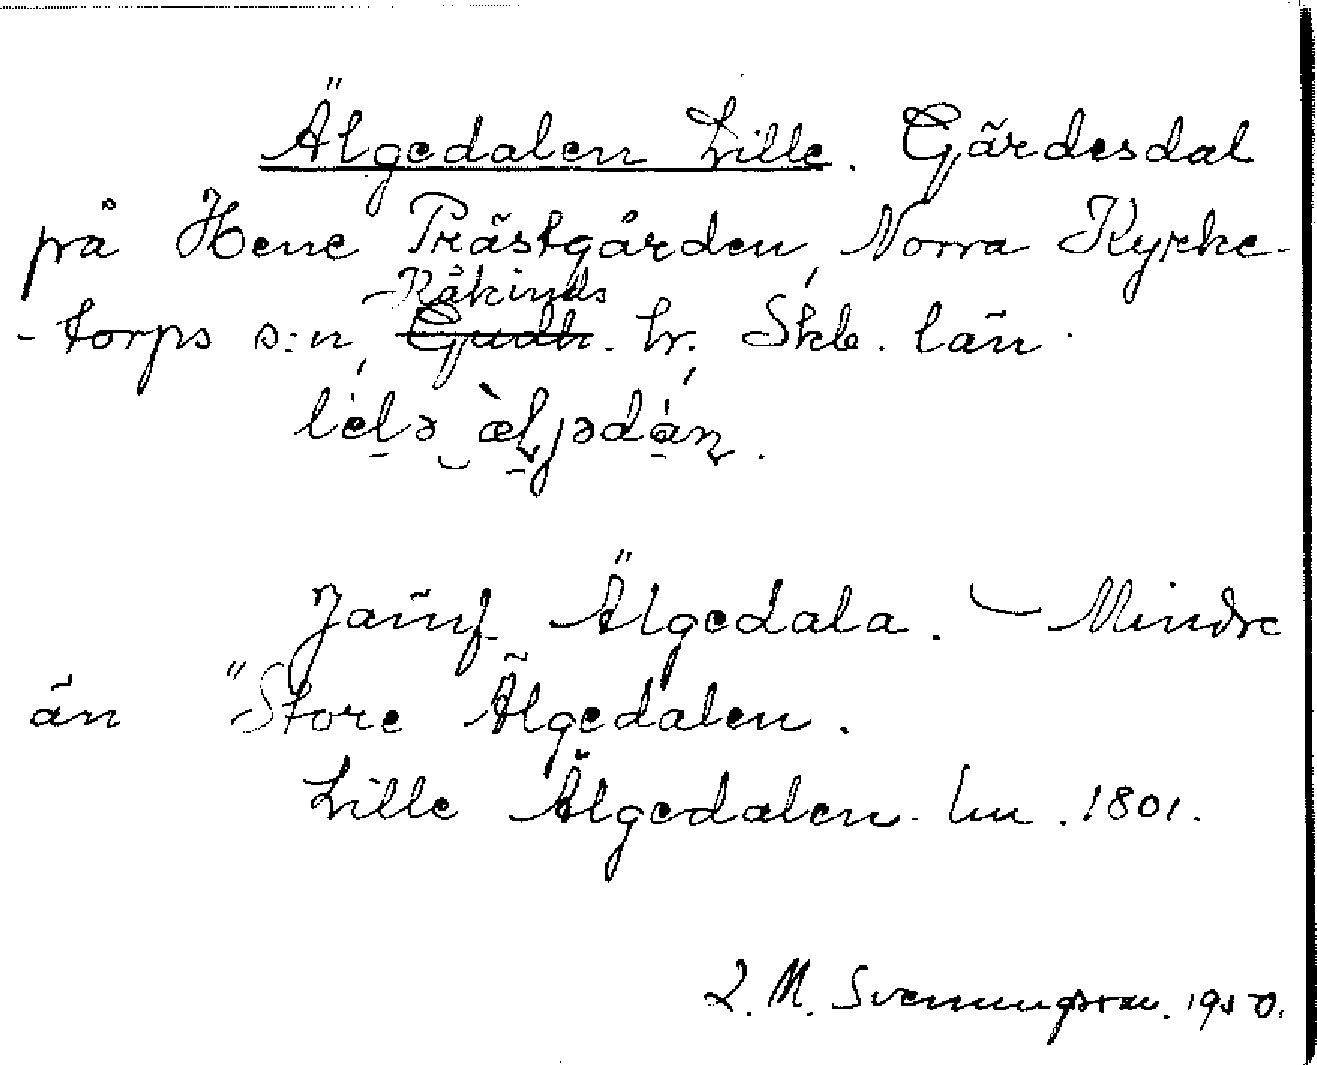 Älgedalen Lille. Gärdesdal
på Hene Prästgården, Norra Kyrke-
-Kåkinds
-torps s:n, Gudh. hr. Skb. län.
Jämf Älgedala. - Mindre
än "Store Älgedalen.
Lille Älgedalen. lm. 1801.
L. M. Svenungsson. 1950.